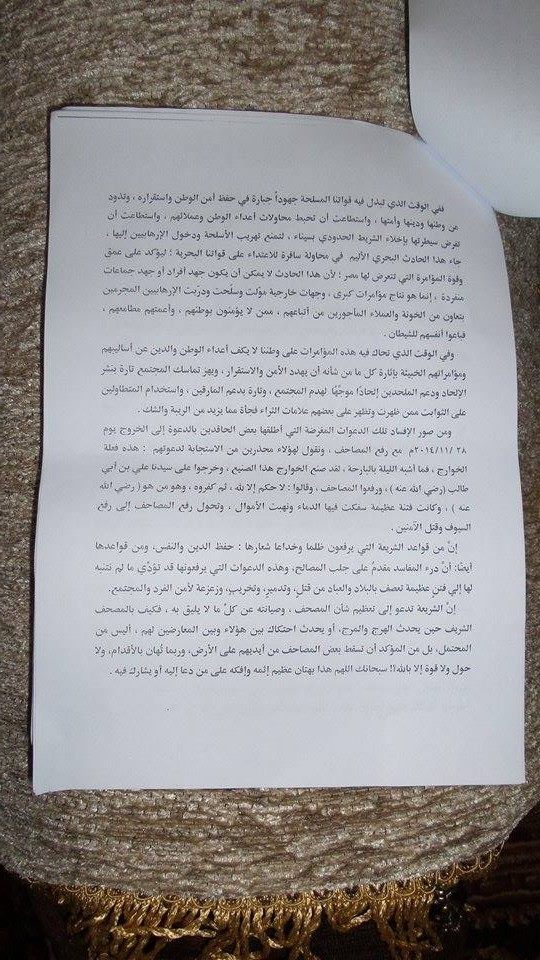 ففي الوقت الذي تبذل فيه قواتنا المسلحة جهوداً جبارة في حفظ أمن الوطن واستقراره ، وتذود
عن وطنها ودينها وأمنها ، واستطاعت أن تحبط محاولات أعداء الوطن وعملائهم ، واستطاعت أن
تفرض سيطرتها بإخلاء الشريط الحدودي بسيناء ، لتمنع تهريب الأسلحة ودخول الإرهابيين إليها ،
جاء هذا الحادث البحري الأليم في محاولة سافرة للاعتداء على قواتنا البحرية : ليؤكد على عمق
وقوة المؤامرة التي تتعرض لها مصر ؛ لأن هذا الحادث لا يمكن أن يكون جهد أفراد أو جهد جماعات
منفردة ، إنما هو نتاج مؤامرات كبرى ، وجهات خارجية موّلت وسلّحت ودرّبت الإرهابيين المجرمين
بتعاون من الخونة والعملاء المأجورين من أتباعهم ، ممن لا يؤمنون بوطنهم ، وأعمتهم مطامعهم ،
فباعوا أنفسهم للشيطان .
وفي الوقت الذي تحاك فيه هذه المؤامرات على وطننا لا يكف أعداء الوطن والدين عن أساليبهم
ومؤامراتهم الخبيثة بإثارة كل ما من شأنه أن يهدد الأمن والاستقرار ، ويهز تماسك المجتمع تارة بنشر
الإلحاد ودعم الملحدين إلحادًا موجّهًا لهدم المجتمع ، وتارة بدعم المارقين ، واستخدام المتطاولين
على الثوابت ممن ظهرت وتظهر على بعضهم علامات الثراء فجأة مما يزيد من الريبة والشك .
ومن صور الإفساد تلك الدعوات المغرضة التي أطلقها بعض الحاقدين بالدعوة إلى الخروج يوم
٢٨ /٢٠١٤/١١م مع رفع المصاحف ، ونقول لهؤلاء محذرين من الاستجابة لدعوتهم : هذه فعلة
الخوارج ، فما أشبه الليلة بالبارحة ، لقد صنع الخوارج هذا الصنيع ، وخرجوا على سيدنا علي بن أبي
طالب (رضي الله عنه ) ، ورفعوا المصاحف ، وقالوا : لا حكم إلا لله ، ثم كفروه ، وهو من هو ( رضي الله
عنه ) ، وكانت فتنة عظيمة سفكت فيها الدماء ونهبت الأموال ، وتحول رفع المصاحف إلى رفع
السيوف وقتل الآمنين .
إنّ من قواعد الشريعة التي يرفعون ظلما وخداعا شعارها : حفظ الدين والنفس، ومن قواعدها
أيضًا: أنّ درء المفاسد مقدمٌ على جلب المصالح، وهذه الدعوات التي يرفعونها قد تؤدّي ما لم نتنبه
لها إلى فتنٍ عظيمة تعصف بالبلاد والعباد من قتلٍ، وتدميرٍ، وتخريبٍ، وزعزعة لأمن الفرد والمجتمع.
إنّ الشريعة تدعو إلى تعظيم شأن المصحف ، وصيانته عن كلّ ما لا يليق به ، فكيف بالمصحف
الشريف حين يحدث الهرج والمرج، أو يحدث احتكاك بين هؤلاء وبين المعارضين لهم ، أليس من
المحتمل، بل من المؤكد أن تسقط بعض المصاحف من أيديهم على الأرض، وربما تُهان بالأقدام، ولا
حول ولا قوة إلا بالله!! سبحانك اللهم هذا بهتان عظيم إثمه وإفكه على من دعا إليه أو يشارك فيه .